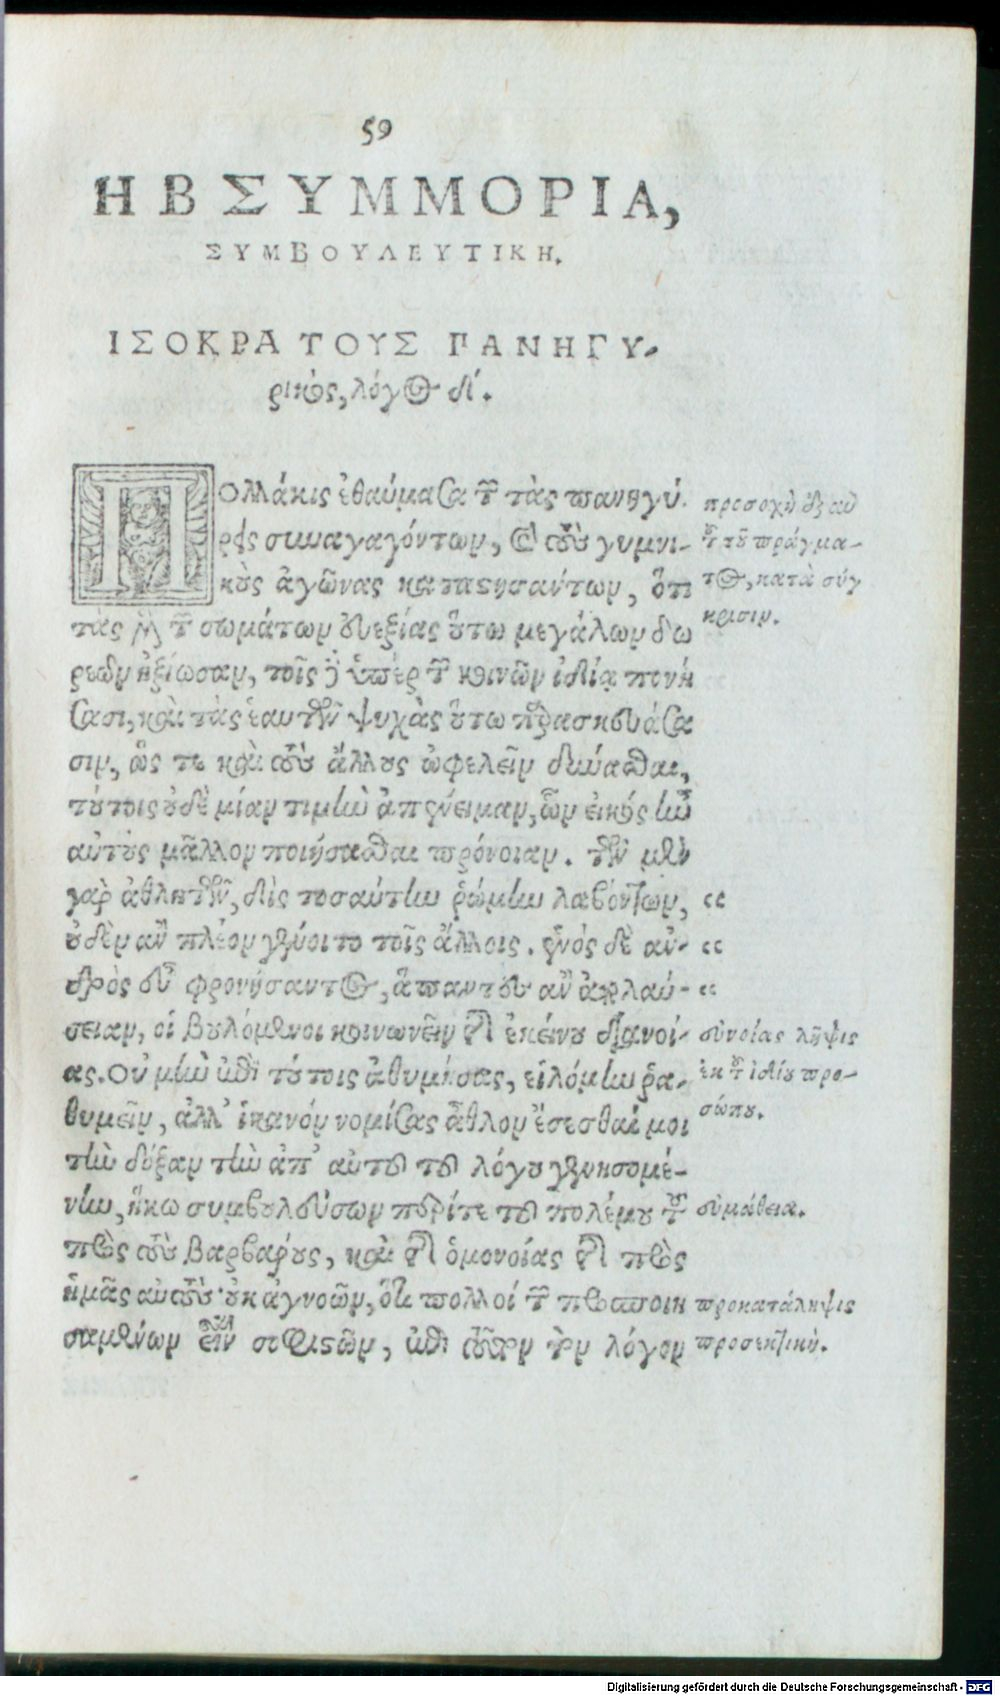 59
Η Β ΣΥΜΜΟΡΙΑ,
ΣΥΜΒΟΥΛΕΥΤΙΚΗ.
ΙΣΟΚΡΑΤΟΥΣ ΠΑΝΗΓΥ-
ρικὸς, λόγος δ΄.
Πολλάκις ἐθαύμασα τῶν τὰς πανηγύ-
ρεις συναγαγόντων, καὶ τοὺς γυμνι-
κοὺς ἀγῶνας καταστησάντων, ὅτι
τὰς μὲν τῶν σωμάτων εὐεξίας οὕτω μεγάλων δω
ρεῶν ἠξίωσαν, τοῖς δὲ ὑπὲρ τῶν κοινῶν ἰδίᾳ πονή
σασι, καὶ τὰς ἑαυτῶν ψυχὰς οὕτω παρασκευάσα
σιν, ὥς τε καὶ τοὺς ἄλλους ὠφελεῖν δύνασθαι,
τούτοις οὐδὲ μίαν τιμὴν ἀπένειμαν, ὧν εἰκός ἦν
αὐτοὺς μᾶλλον ποιήσασθαι πρόνοιαν. τῶν μὲν
γὰρ ἀθλητῶν, δὶς τοσαύτην ῥώμην λαβόντων, ‹‹
οὐδὲν ἂν πλέον γένοιτο τοῖς ἄλλοις. ἑνὸς δὲ ἀν- ‹‹
δρὸς εὖ φρονήσαντος, ἅπαντες ἂν ἀπολαύ- ‹‹
σειαν, οἱ βουλόμενοι κοινωνεῖν τῆς ἐκείνου διανοί-
ας. Οὐ μὴν ἐπὶ τούτοις ἀθυμήσας, εἱλόμην ῥα-
θυμεῖν, ἀλλ᾽ ἱκανόν νομίσας ἆθλον ἔσεσθαί μοι
τὴν δόξαν τὴν ἀπ᾽ αὐτοῦ τοῦ λόγου γενησομέ-
νην, ἥκω συμβουλεύσων περί τε τοῦ πολέμου τοῦ
πρὸς τοὺς βαρβάρους, καὶ τῆς ὁμονοίας τῆς πρὸς
ἡμᾶς αὐτούς· οὐκ ἀγνοῶν, ὅτι πολλοί τῶν προσποιη
σαμένων εἶναι σοφιστῶν, ἐπὶ τοῦτον τὸν λόγον
προσοχὴ ἐξ αὐ
τοῦ τοῦ πράγμα-
τος, κατὰ σύγ
κρισιν.
εὐνοίας λῆψις
ἐκ τοῦ ἰδίου προ-
σώπου.
εὐμάθεια.
προκατάληψις
προσεκτική.
Digitalisierung gefördert durch die Deutsche Forschungsgemeinschaft - DFG